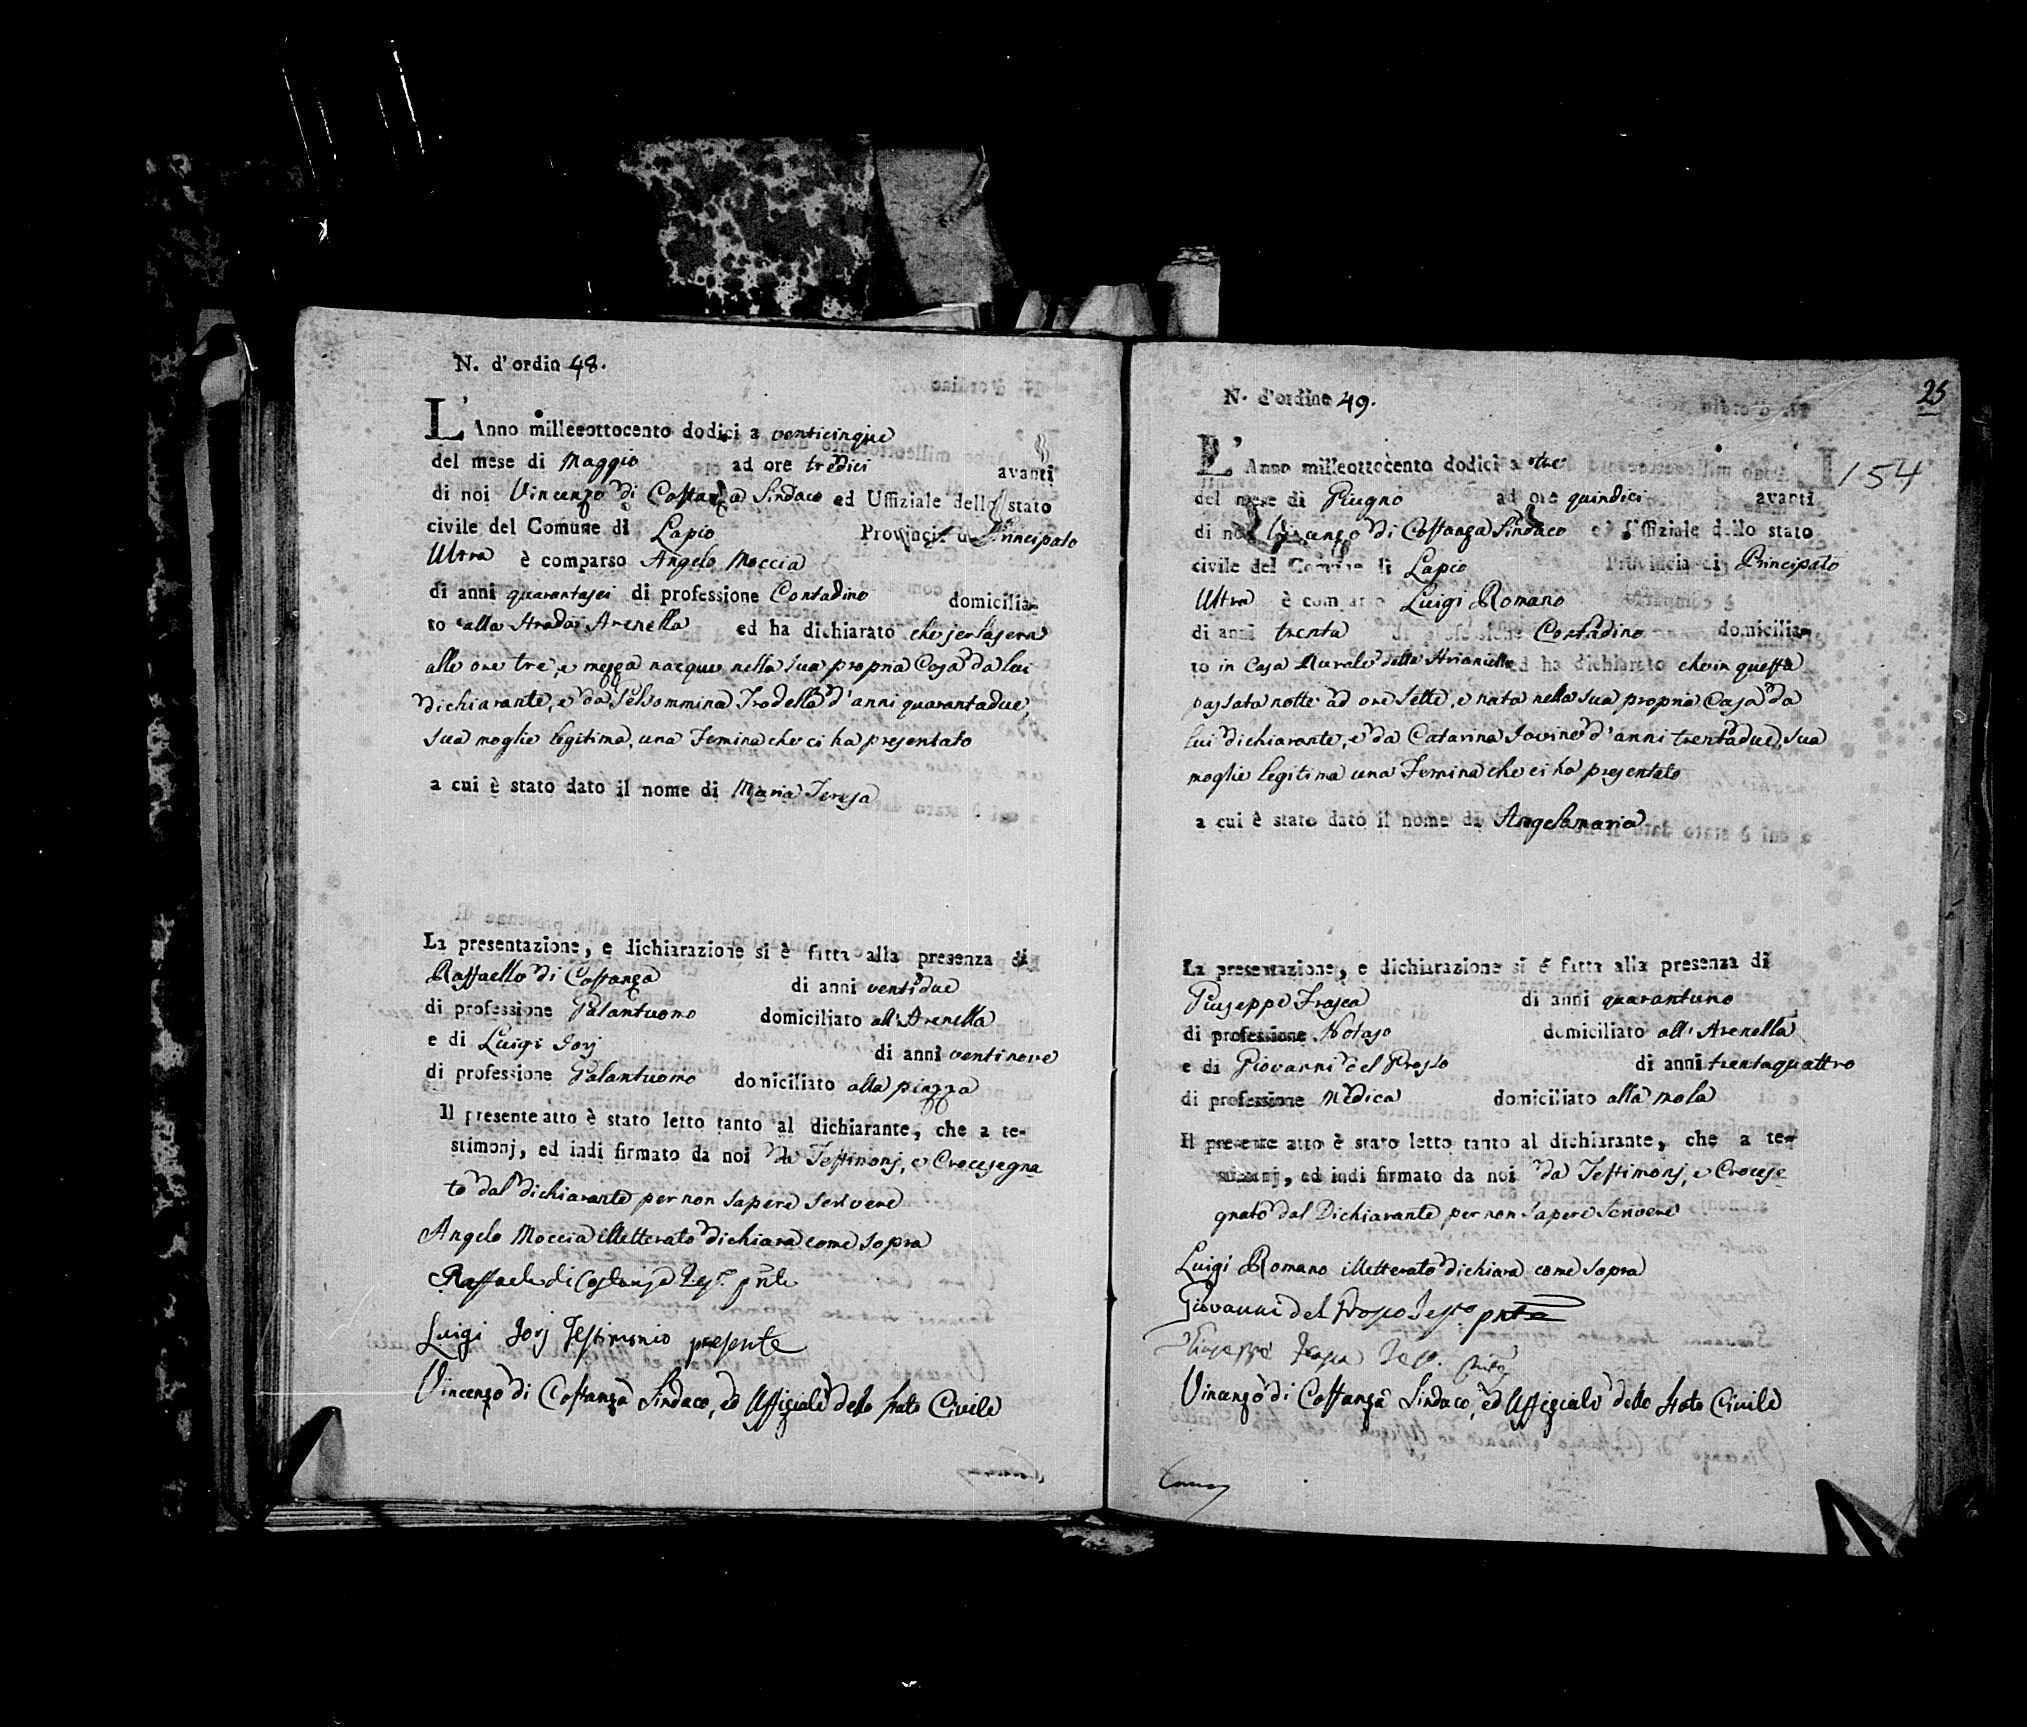 N. d'ordin 48.
L'Anno milleeottocento dodici a venticinque
del mese di Maggio ad ore tredici avanti
di noi Vincenzo di Costanza Sindaco ed Uffiziale dello stato
civile del Comune di Lapio Provincia di Principato
Ultra è comparso Angelo Moccia
di anni quarantasei di professione Contadino domicilia-
to alla strada Arenella ed ha dichiarato che jer la sera
alle ore tre, e mezza nacque nella sua propria Casa da lui
dichiarante, e da Gelsommina Trodella d'anni quarantadue,
sua moglie legitima, una Femina che ci ha presentato
a cui è stato dato il nome di Maria Teresa
La presentazione, e dichiarazione si è fatta alla presenza di
Raffaello di Costanza di anni ventidue
di professione Galantuomo domiciliato all'Arenella
e di Luigi Jorj di anni ventinove
di professione Galantuomo domiciliato alla piazza
Il presente atto è stato letto tanto al dichiarante, che a te-
stimonj, ed indi firmato da noi da Testimonj, e Crocesegna
to dal dichiarante per non sapere scrivere
Angelo Moccia illetterato dichiara come sopra
Raffaele di Costanza
Luigi Jorj Testimonio presente
Vincenzo di Costanza Sindaco, ed Uffiziale dello stato Civile
25
154
N. d'ordine 49.
L'Anno milleottocento dodici a tre
del mese di Giugno ad ore quindici avanti
di noi Vincenzo di Costanza Sindaco ed Uffiziale dello stato
civile del Comune di Lapio Provincia di Principato
Ultra è comparso Luigi Romano
di anni trenta di professione Contadino domicilia-
to in Casa Rurale delle Arianielle ed ha dichiarato che in questa
passata notte ad ore sette, e nata nella sua propria Casa da
lui dichiarante, e da Catarina Iovine d'anni trentadue, sua
moglie legitima una Femina che ci ha presentato
a cui è stato dato il nome di Angelamaria
La presentazione, e dichiarazione si è fatta alla presenza di
Giuseppe Frasca di anni quarantuno
di professione Notajo domiciliato all'Arenella
e di Giovanni del Prosto di anni trentaquattro
di professione Medica domiciliato alla mola
Il presente atto è stato letto tanto al dichiarante, che a te-
stimonj, ed indi firmato da noi da Testimonj, e Crocese
gnato dal Dichiarante per non sapere Scrivere
Luigi Romano illetterato dichiara come sopra
Giovanni del
Giuseppe
Vincenzo di Costanza Sindaco, ed Uffiziale dello stato Civile